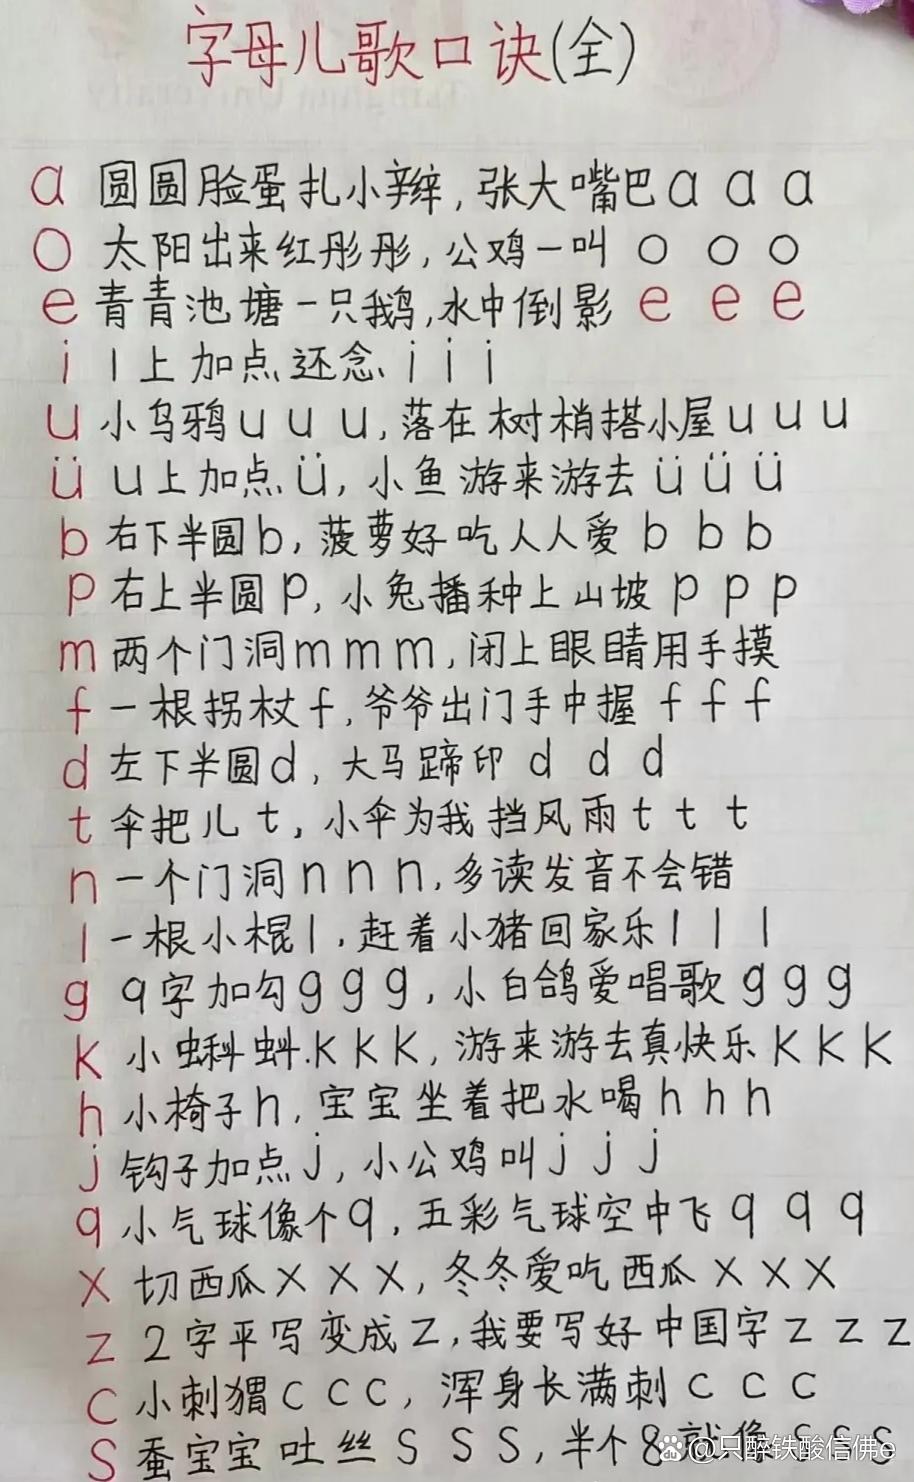 字母儿歌口诀(全)
a 圆圆脸蛋扎小辫,张大嘴巴a a a
o 太阳出来红彤彤,公鸡一叫 o o o
e 青青池塘一只鹅,水中倒影 e e e
i 1上加点还念 i i i
u 小乌鸦u u u,落在树梢搭小屋u u u
ü u上加点ü,小鱼游来游去 ü ü ü
b 右下半圆b,菠萝好吃人人爱 b b b
p 右上半圆p,小兔播种上山坡 p p p
m 两个门洞m m m,闭上眼睛用手摸
f 一根拐杖f,爷爷出门手中握 f f f
d 左下半圆d,大马蹄印 d d d
t 伞把儿t,小伞为我挡风雨 t t t
n 一个门洞n n n,多读发音不会错
l 一根小棍l,赶着小猪回家乐 l l l
g 9字加勾g g g,小白鸽爱唱歌 g g g
k 小蝌蚪.k k k,游来游去真快乐 k k k
h 小椅子h,宝宝坐着把水喝 h h h
j 钩子加点j,小公鸡叫 j j j
q 小气球像个q,五彩气球空中飞 q q q
x 切西瓜 x x x,冬冬爱吃西瓜 x x x
z 2字平写变成z,我要写好中国字 z z z
c 小刺猬c c c,浑身长满刺 c c c
s 蚕宝宝吐丝 s s s,半个8就像 s s s
@只醉铁酸信佛e